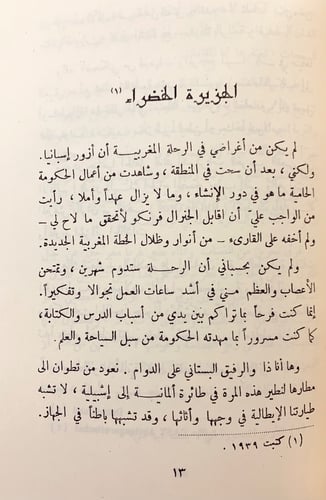 الجزيرة الخضراء (١)
لم يكن من أغراضي في الرحلة المغربية أن أزور إسبانيا.
ولكني ، بعد أن سحت في المنطقة ، وشاهدت من أعمال الحكومة
الحامية ما هو في دور الإنشاء ، وما لا يزال عهداً وأملا ، رأيت
من الواجب عليّ أن اقابل الجنرال فرنكو لأتحقق ما لاح لي –
ولم أخفه على القارىء – من أنوار وظلال الخطة المغربية الجديدة.
ولم يكن بحسباني أن الرحلة ستدوم شهرين ، وتمتحن
الأعصاب والعظم مني في أشد ساعات العمل تجوالا وتفكيراً.
إنما كنت فرحاً بما تراكم بين يدي من أسباب الدرس والكتابة،
كما كنت مسروراً بما مهدته الحكومة من سبل السياحة والعلم.
وها أنا ذا والرفيق البستاني على الدوام . نعود من تطوان الى
مطارها لنطير هذه المرة في طائرة ألمانية إلى إشبيلية ، لا تشبه
طيارتنا الإيطالية في وجهها وأثاثها ، وقد تشبهها باطناً في الجهاز.
(١) كتبت ١٩٣٩ .
١٣